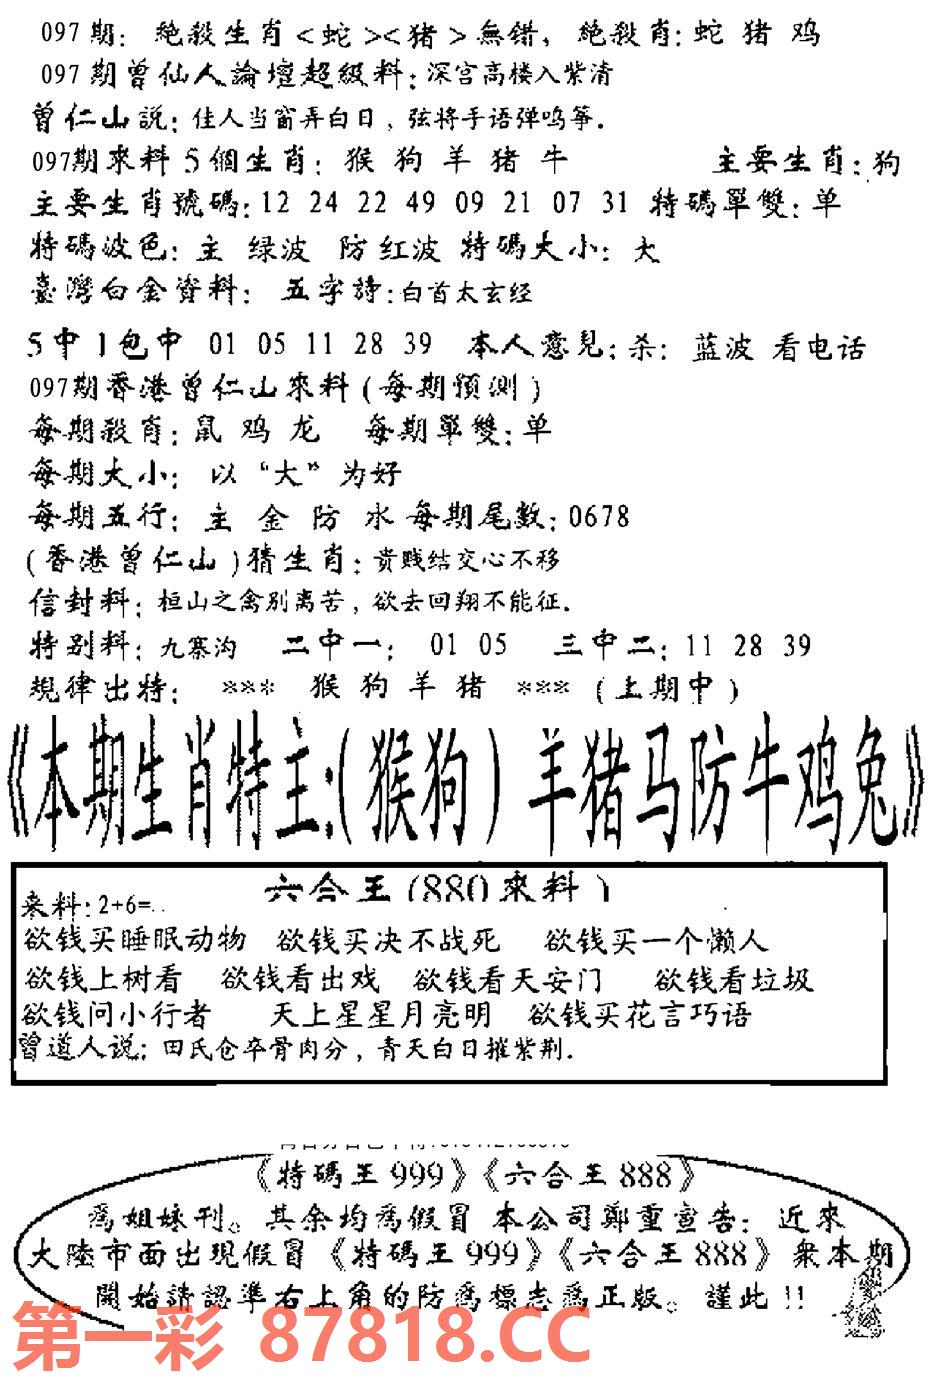 097期: 絶殺生肖<蛇><猪>無错, 絶殺肖:蛇 猪 鸡
097期曾仙人論壇超級料:深宫高楼入紫清
曾仁山説:佳人当窗弄白日,弦将手语弹鸣筝.
097期來料5個生肖:猴 狗 羊 猪 牛 主要生肖:狗
主要生肖號碼:12 24 22 49 09 21 07 31 特碼單雙:单
特碼波色:主 绿波 防红波 特碼大小:大
臺灣白金資料: 五字詩:白首太玄经
5中1包中 01 05 11 28 39 本人意見:杀:蓝波 看电话
097期香港曾仁山來料(每期預測)
每期殺肖:鼠 鸡 龙 每期單雙:单
每期大小:以"大"为好
每期五行:主 金 防 水 每期尾數:0678
(香港曾仁山)猜生肖:贵贱结交心不移
信封料:桓山之禽别离苦,欲去回翔不能征.
特别料:九寨沟 二中一:01 05 三中二:11 28 39
規律出特: *** 猴 狗 羊 猪 *** (上期中)
《本期生肖特主:(猴狗)羊猪马防牛鸡兔》
六合王(880來料)
来料:2+6=..
欲钱买睡眠动物 欲钱买决不战死 欲钱买一个懒人
欲钱上树看 欲钱看出戏 欲钱看天安门 欲钱看垃圾
欲钱问小行者 天上星星月亮明 欲钱买花言巧语
曾道人说:田氏仓卒骨肉分,青天白日摧紫荆.
《特碼王999》《六合王888》
爲姐妹刊。其余均爲假冒 本公司鄭重宣告: 近來
大陸市面出現假冒《特碼王999》《六合王888》衆本期
開始請認準右上角的防爲標志爲正版。謹此!!
第一彩 87818.CC